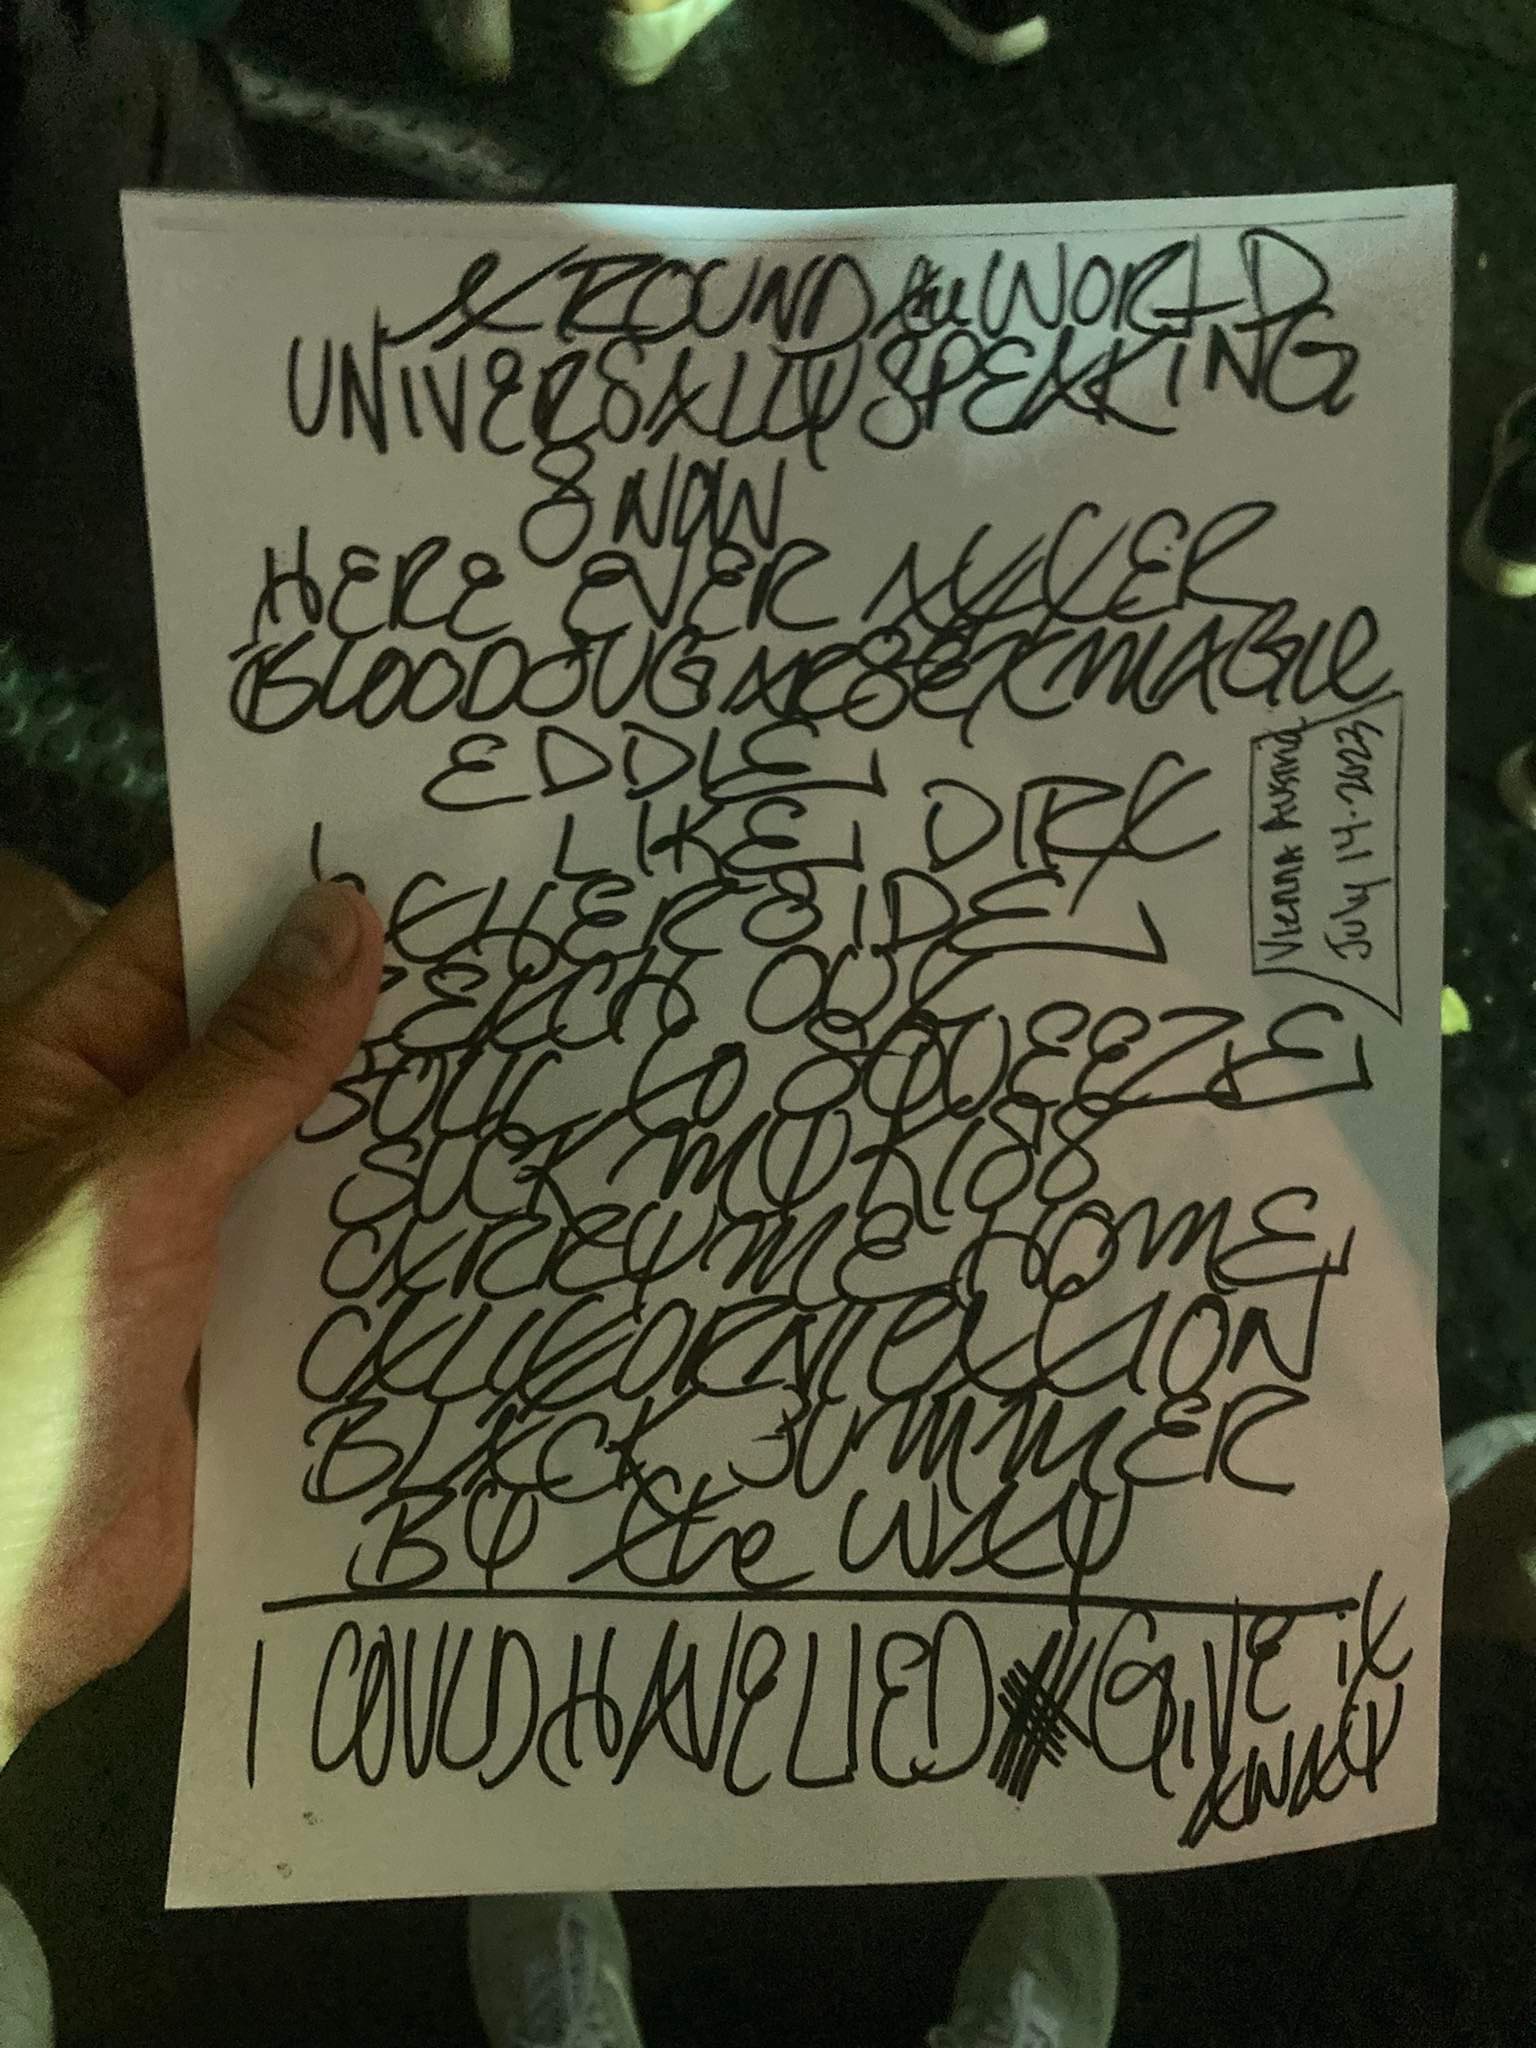 AROUND the WORLD
UNIVERSALLY SPEAKING
8 NOW
HERE EVER AFTER
BLOODSUGARSEXMAGIK
EDDIE
I LIKE DIRT
OTHERSIDE
REACH OUT
SOUL TO SQUEEZE
SUCK MY KISS
CARRY ME HOME
CALIFORNICATION
BLACK SUMMER
BY the WAY
I COULD HAVE LIED GIVE it
AWAY
Vienna Austria
July 14. 2023